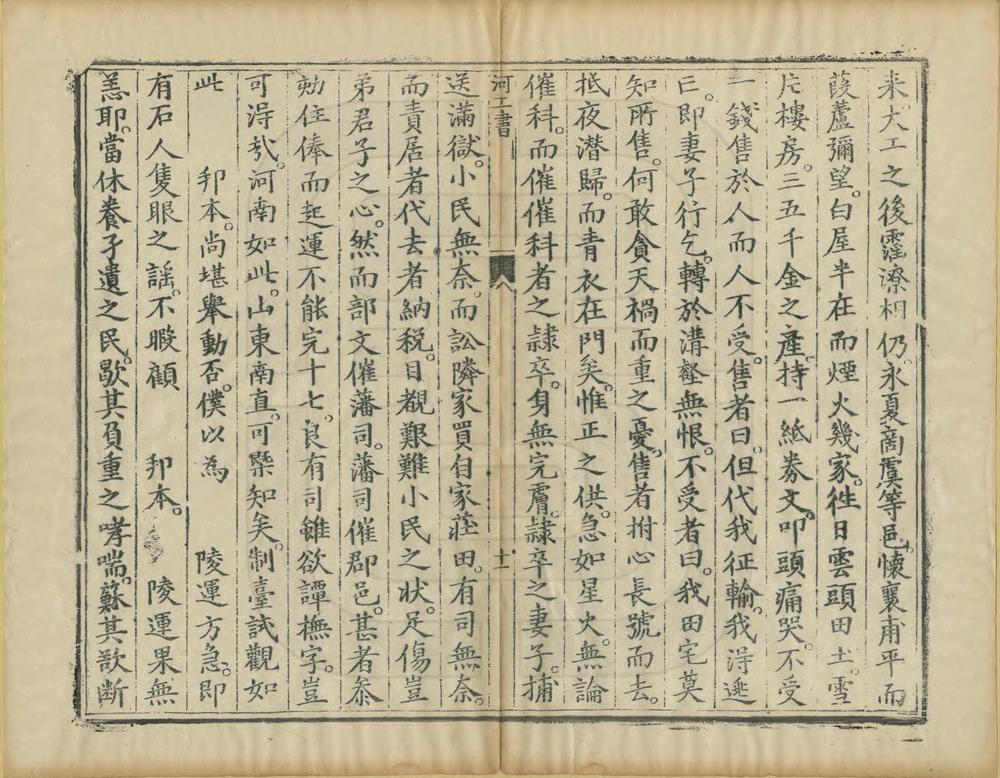 来大工之後霪潦相仍永夏商虞等邑。懷襄甫平而
葭蘆彌望。白屋半在而煙火幾家。徃日雲頭田土。雪
片樓房。三五千金之產。持一紙劵文。叩頭痛哭。不受
一錢售於人而人不受。售者曰。但代我征輸。我淂逃
亡。即妻子行乞。轉於溝壑無恨。不受者曰。我田宅莫
知所售。何敢貪天禍而重之憂。售者拊心長號而去。
抵夜潛歸。而青衣在門矣。惟正之供。急如星火。無論
催科。而催催科者之隸卒。身無完膚。隸卒之妻子。捕
河工書
八
十一
送滿獄。小民無奈。而訟隣家買自家莊田。有司無奈。
而責居者代去者納稅。目覩艱難小民之狀。足傷豈
弟君子之心。然而部文催藩司。藩司催郡邑。甚者叅
劾住俸而起運不能完十七。良有司雖欲譚撫字。豈
可淂㢤。河南如此。山東南直。可槩知矣。制臺試觀如
此　邦本。尚堪舉動否。僕以為　陵運方急。即
有石人隻眼之謡。不暇顧　邦本。　陵運果無
恙耶。當休養孑遺之民。歇其負重之哮喘。蘇其㱃断